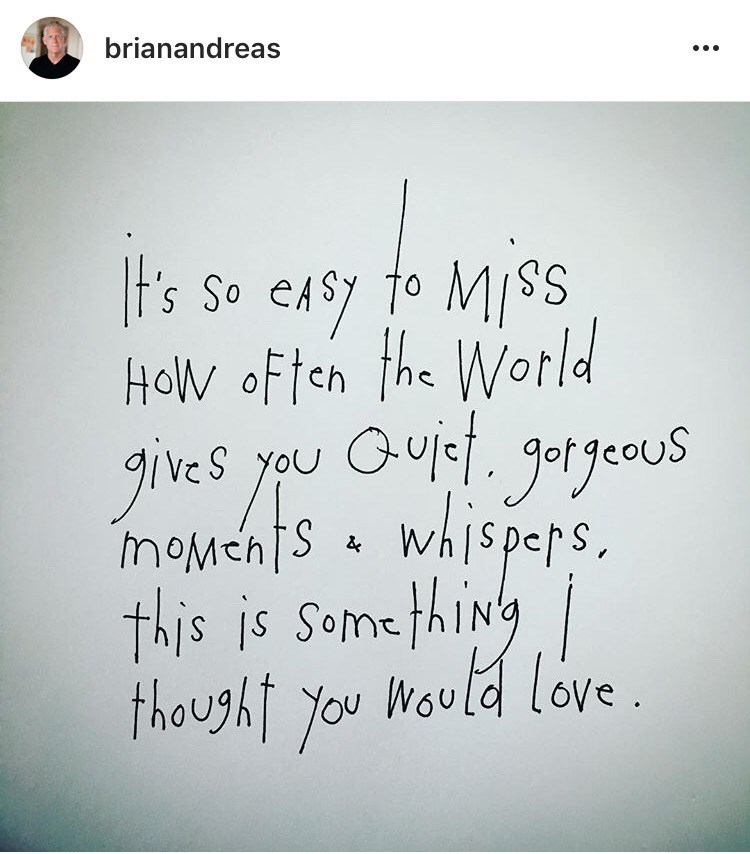 brianandreas
it's so eASy to Miss
HoW oFten the World
gives you Quiet, gorgeous
moMents & whispers,
this is somethiNg i
thought you would love.